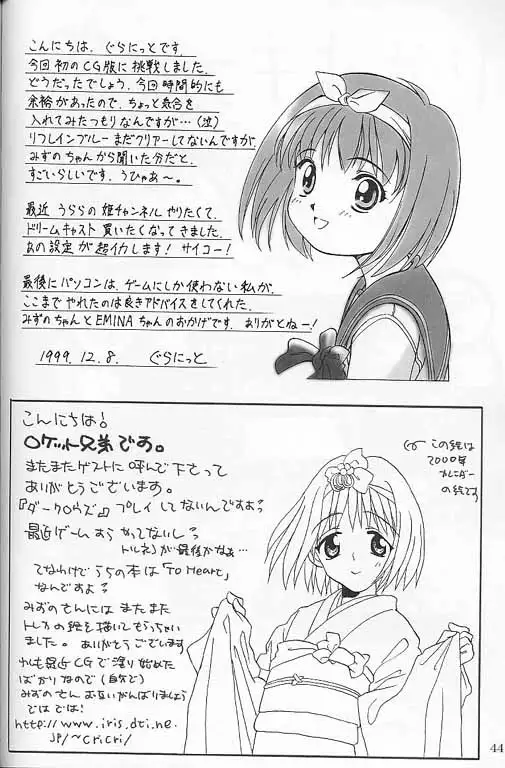 こんにちは、ぐらにっとです。
今回初のCG版に挑戦しました。
どうだったでしょう。今回時間的にも
余裕があったので、ちょっと気合を
入れてみたつもりなんですが…(泣)
リフレインブルーまだクリアーしてないんですが
みずのちゃんから聞いた分だと、
すごいらしいです。うひゃあ〜。
最近 うららの 姫チャンネル やりたくて、
ドリームキャスト 買いたくなってきました。
あの設定が超イカします！サイコー！
最後にパソコンは、ゲームにしか使わない私が、
ここまでやれたのは良きアドバイスをしてくれた、
みずのちゃんとEMINAちゃんのおかげです。ありがとねー！
1999.12.8. ぐらにっと
こんにちは！
ロケット兄弟です。
またまたゲストに呼んで下さって
ありがとうございます。
『ダークロウズ』プレイしてないんですよ？
最近ゲームすらやってないし？
トルネコが最後かなぁ…
てなわけでうちの本は「To Heart」
なんですよ？
みずのさんにはまたまた
トレカの絵を描いてもらっちゃい
ました。ありがとうございます
われも最近CGで塗り始めた
ばかりなので(自分で)
みずのさんお互いがんばりましょう
ではでは！
http://www.iris.dti.ne.
jp/~cricri/
この絵は
2000年
カレンダー
の絵です
44